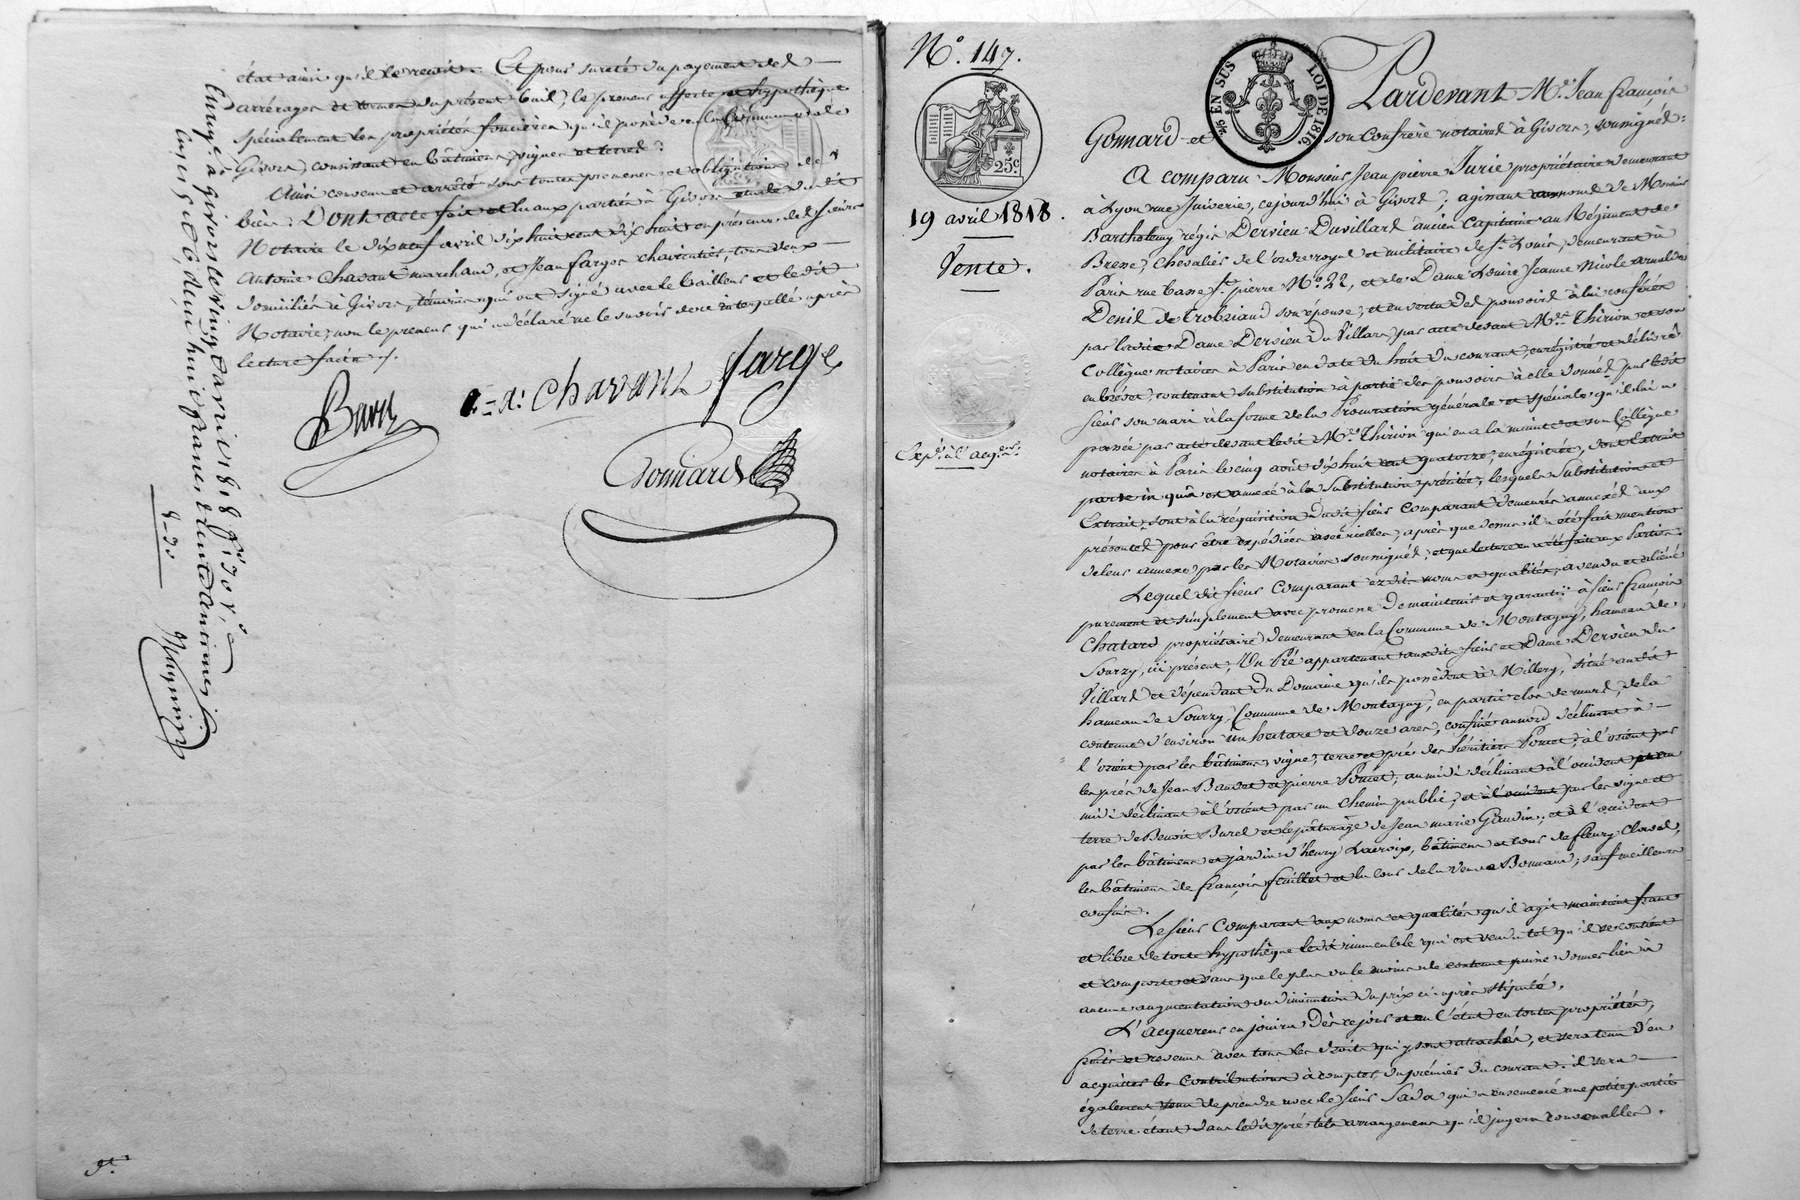 état ainsi qu'il le reçoit. Et pour sureté du payement des
arrérages du présent bail, le preneur affecte et hypothèque
spécialement les propriétés foncières qu'il possède en la Commune de
Givors, consistant en bâtimens, vignes et terres.
Ainsi convenu et arrêté sous toutes promesses et obligations de
biens. DONT acte fait et lu aux parties à Givors étude dudit
Notaire le dix neuf avril dix huit cent dix huit en présence des sieurs
Antoine Chavant marchand, et Jean Farges charpentier, tous deux
domiciliés à Givors, témoins qui ont signé avec le bailleur et ledit
Notaire, non le preneur qui a déclaré ne le savoir de ce interpellé après
lecture faite ./.
A. Chavant
farge
Gonnard
Enregé à Givors le vingt avril 1818 fo 70 Ro
N.o 147.
25c
EN SUS
LOI DE 1816.
19 avril 1818.
Vente.
Expon à l'acqr
Pardevant Me Jean François
Gonnard et son confrère notaires à Givors, soussignés:
A comparu Monsieur Jean pierre Jurie propriétaire demeurant
à Lyon rue Juiverie, cejourd'hui à Givors, agissant au nom de Monsieur
Barthelemy régis Dervieu Duvillard ancien Capitaine au Régiment de
Bresse, Chevalier de l'ordre royal et militaire de St Louis, demeurant à
Paris rue basse St pierre No 22, et de Dame Louise Jeanne Nicole Arnalde
Denis de Trobriand son épouse, et en vertu des pouvoirs à lui conférés
par ladite Dame Dervieu du Villars, par acte devant Me Thirion et son
Collègue notaires à Paris en date du huit du courant, enrégistré et délivré
en brevet, contenant substitution à partie des pouvoirs à elle donnés par ledit
sieur son mari à la forme de la Procuration générale et spéciale qu'il lui a
passée par acte devant ledit Me Thirion qui en a la minute et son Collègue
notaires à Paris le cinq août dix huit cent quatorze, enrégistrée, dont extrait
parte in quâ est annexé à la Substitution précitée, lesquels Substitution et
Extrait sont à la réquisition dudit sieur Comparant demeurés annexés aux
présentes pour être expédiées avec icelles, après que dessus il a été fait mention
de leur annexe par les Notaires soussignés, et que lecture en a été faite aux Parties.
Lequel dit sieur Comparant ezdits noms et qualités, a vendu et aliéné
purement et simplement avec promesse de maintenir et garantir à sieur François
Chatard propriétaire demeurant en la Commune de Montagny, hameau de
Sourzy, ici présent, Un Pré appartenant auxdits sieur et Dame Dervieu du
Villard et dépendant du Domaine qu'ils possèdent à Millery, situé audit
hameau de Sourzy, Commune de Montagny, en partie clos de murs, de la
contenue d'environ un hectare et douze ares, confiné au nord déclinant à
l'orient par les bâtimens, vigne, terre et pré des héritiers Poncet, à l'orient par
les prés de Jean Baudet et pierre Poncet, au midi déclinant à l'occident
midi déclinant à l'orient par un chemin public, et à l'occident par les vigne et
terre de Benoit Burel et le pâturage de Jean marie Gaudin, et à l'occident
par les bâtimens et jardin d'henry Lacroix, bâtimens et cour de fleury Clavel,
les bâtimens de françois feuillet et la cour de la Veuve Bonnard, sauf meilleurs
confins.
Le sieur Comparant aux noms et qualités qu'il agit maintient franc
et libre de toute hypothèque ledit immeuble qui est vendu tel qu'il se contient
et comporte et sans que le plus ou le moins de contenue puisse donner lieu à
aucune augmentation ou diminution du prix ci-après stipulé.
L'acquereur en jouira dès ce jour et en l'état en toutes propriétés,
fruits et revenus avec tous les droits qui y sont attachés, et sera tenu d'en
acquitter les Contributions à compter du premier du courant. il sera
également tenu de prendre avec le sieur Sada qui a ensemencé une petite partie
de terre étant dans ledit pré tels arrangemens qu'ils jugeront convenables.